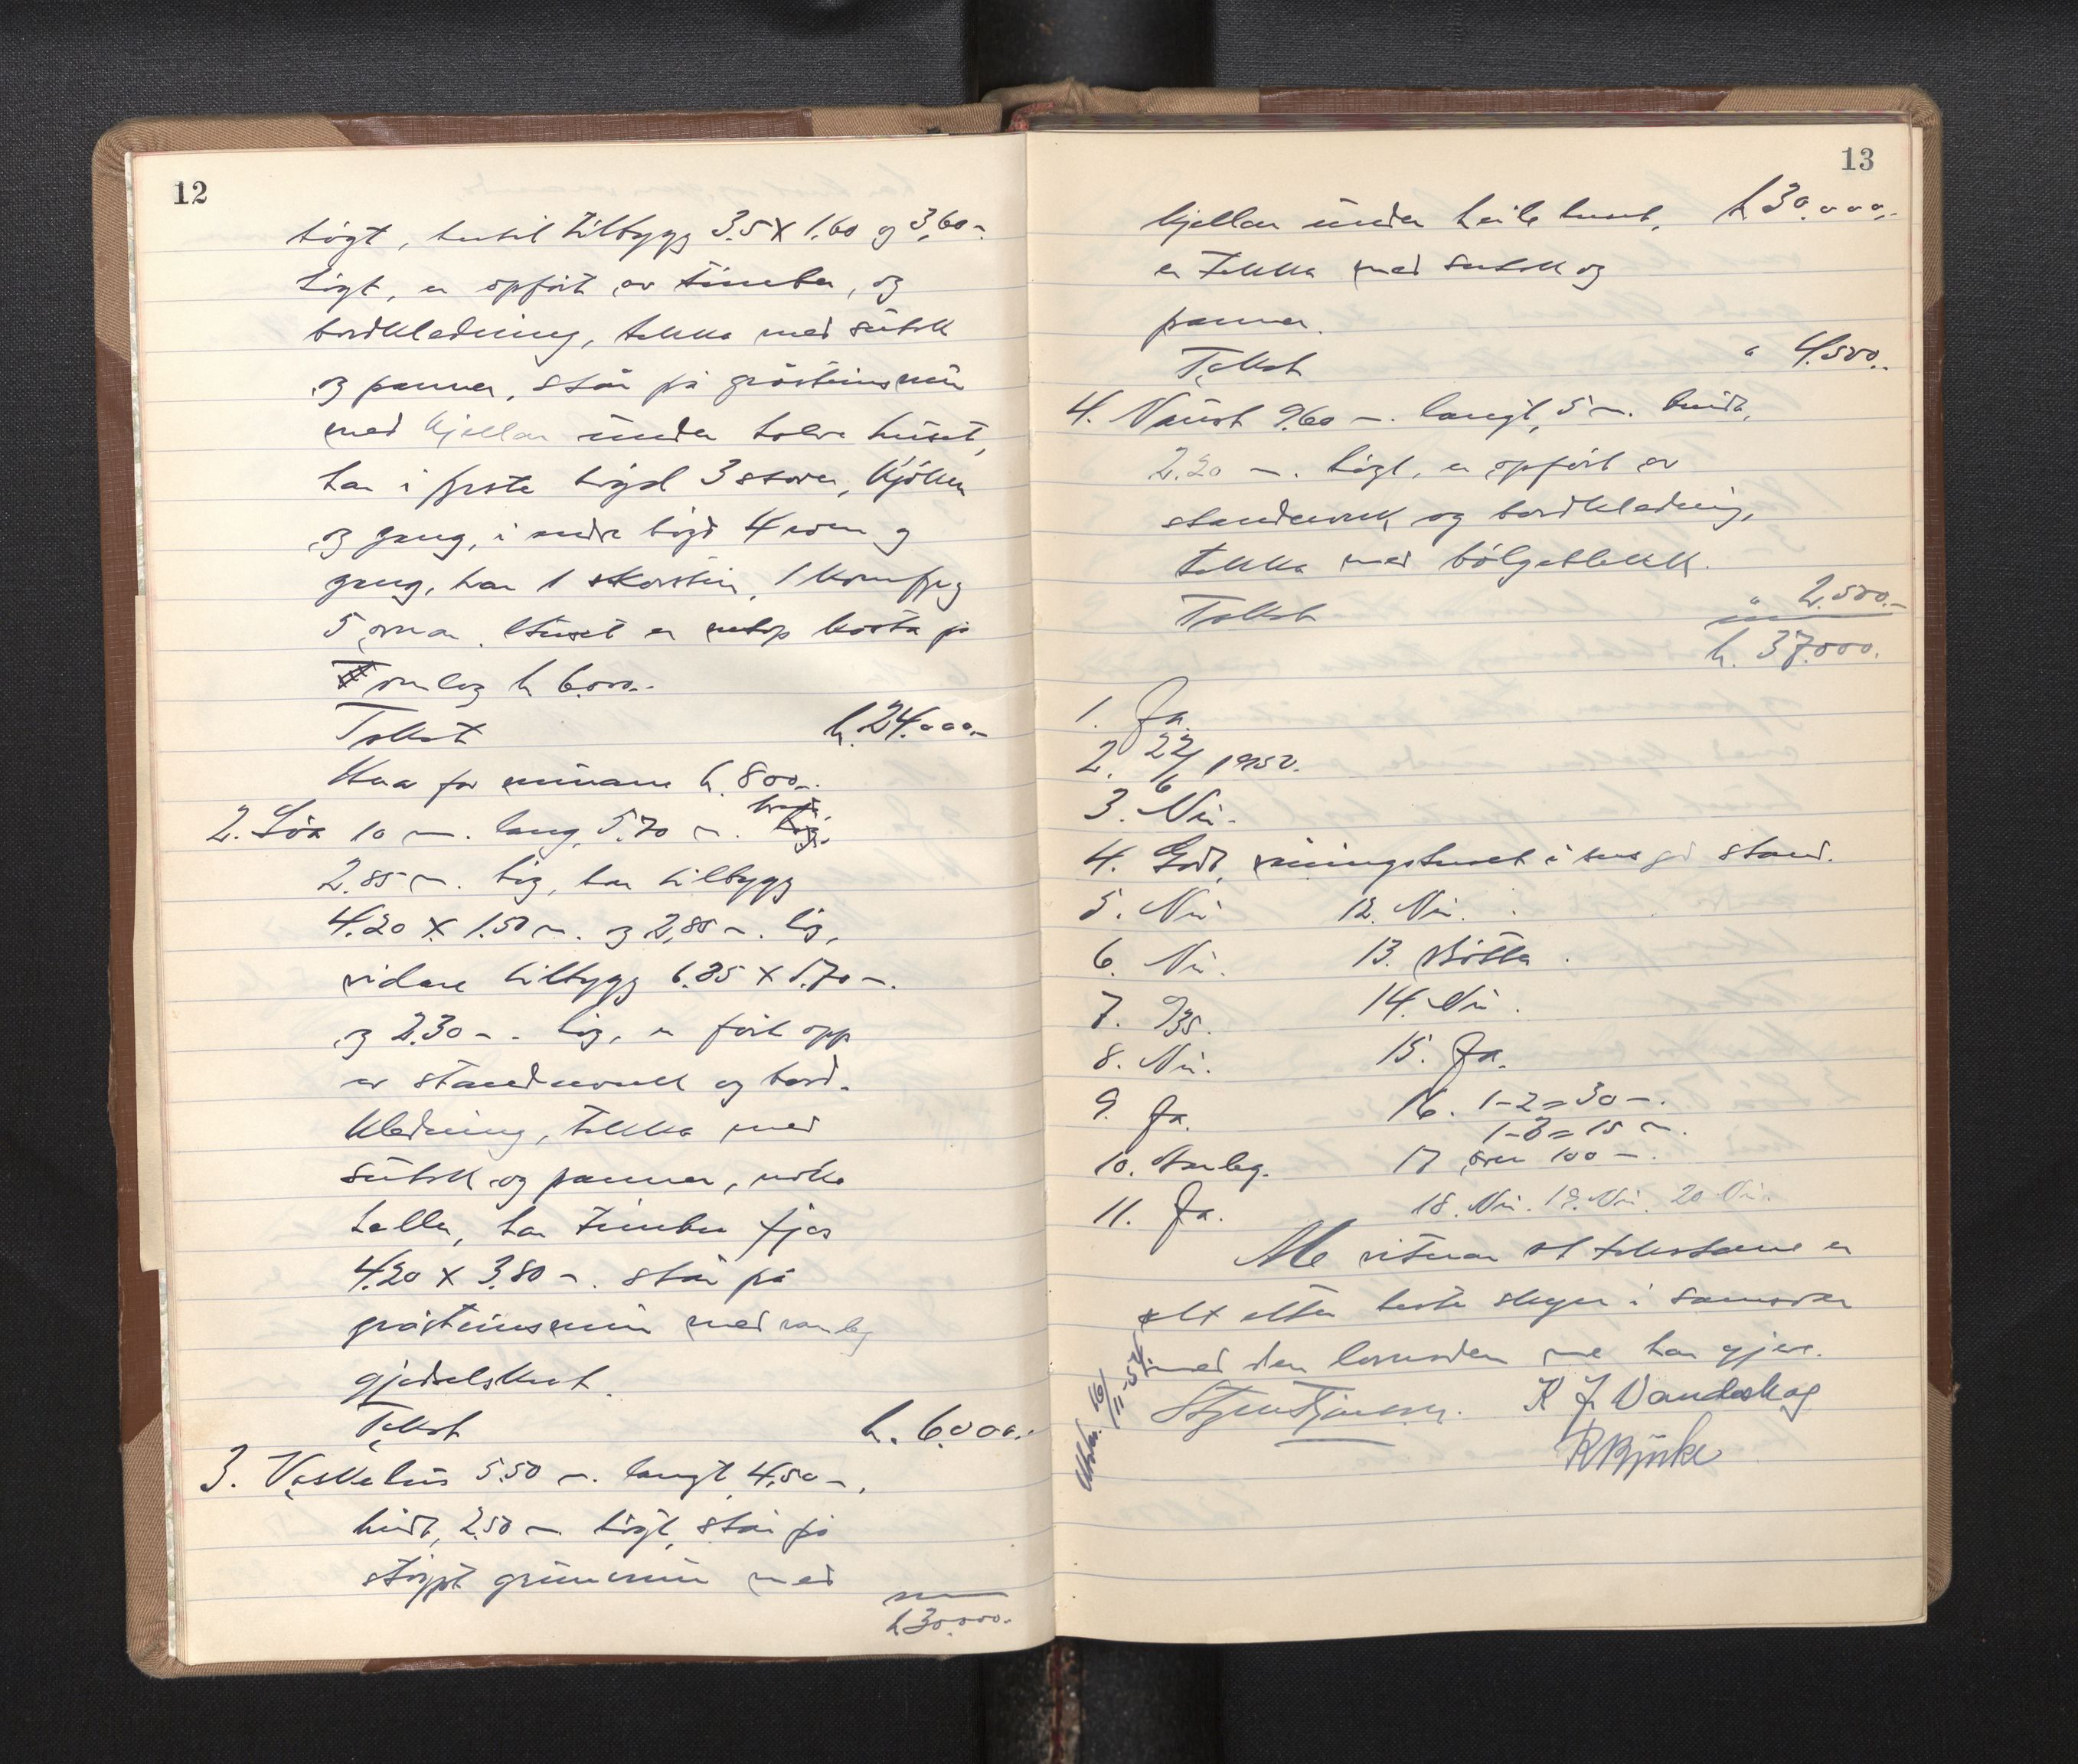 12
högt, hertil tilbygg 3.5 X 1.60 og 3,60 m.
högt, er opfört av timber, og
bordkledning, tekka med sutak
og panner, står på gråsteinsmur
med kjellar under halve huset,
har i fyrste högd 3 stover, kjöken
og gang, i andre högd 4 rom og
gang, har 1 skorstein, 1 komfyr og
5 omnar. Huset er netop kosta på
omlag k 6.000.-
Takst k. 24.000.-
Krav for murane k. 800.-
2. Löa 10 m. lang, 5.70 m. breid,
2.85 m. hög, har tilbygg
4.20 X 1.50 m. og 2,85 m. hög,
vidare tilbygg 6.35 X 5.70 m.
og 2.30 m. hög, er fört opp
av standarverk og bord-
kledning, tekka med
sutak og panner, noko
heller, har timbra fjos
4.20 X 3.80 m. står på
gråsteinsmur med vanleg
gjødselskast.
Takst k. 6.000.-
3. Vaskehus 5.50 m. langt, 4,50 m.
breidt, 2.50 m högt, står på
støypt grunnmur med
k 30.000.-
13
kjellar under heile huset, k 30.000.-
er tekka med sutak og
panner.
Takst " 4.500.-
4. Naust 9.60 m. langt, 5 m. breidt,
2.20 m. högt, er opfört av
standarverk og bordkledning,
tekka med bölgeblekk.
Takst " 2.500.-
k. 37.000.
1. Ja.
2. 22/6 1952.
3. Nei.
4. Godt, våningshuset i hus god stand.
5. Nei 12. Nei.
6. Nei. 13. Bötta.
7. 935. 14. Nei.
8. Nei. 15. Ja.
9. Ja. 16. 1-2 = 30 m.
1-3 = 15 m.
10. Vanleg. 17 over 100 m.
11. Ja. 18. Nei. 19. Nei. 20 Nei.
Me vitnar at takstane er
sett etter beste skjyn i samsvar
med den lovnaden me har gjeve.
K J. Vandaskog
16/11-52.